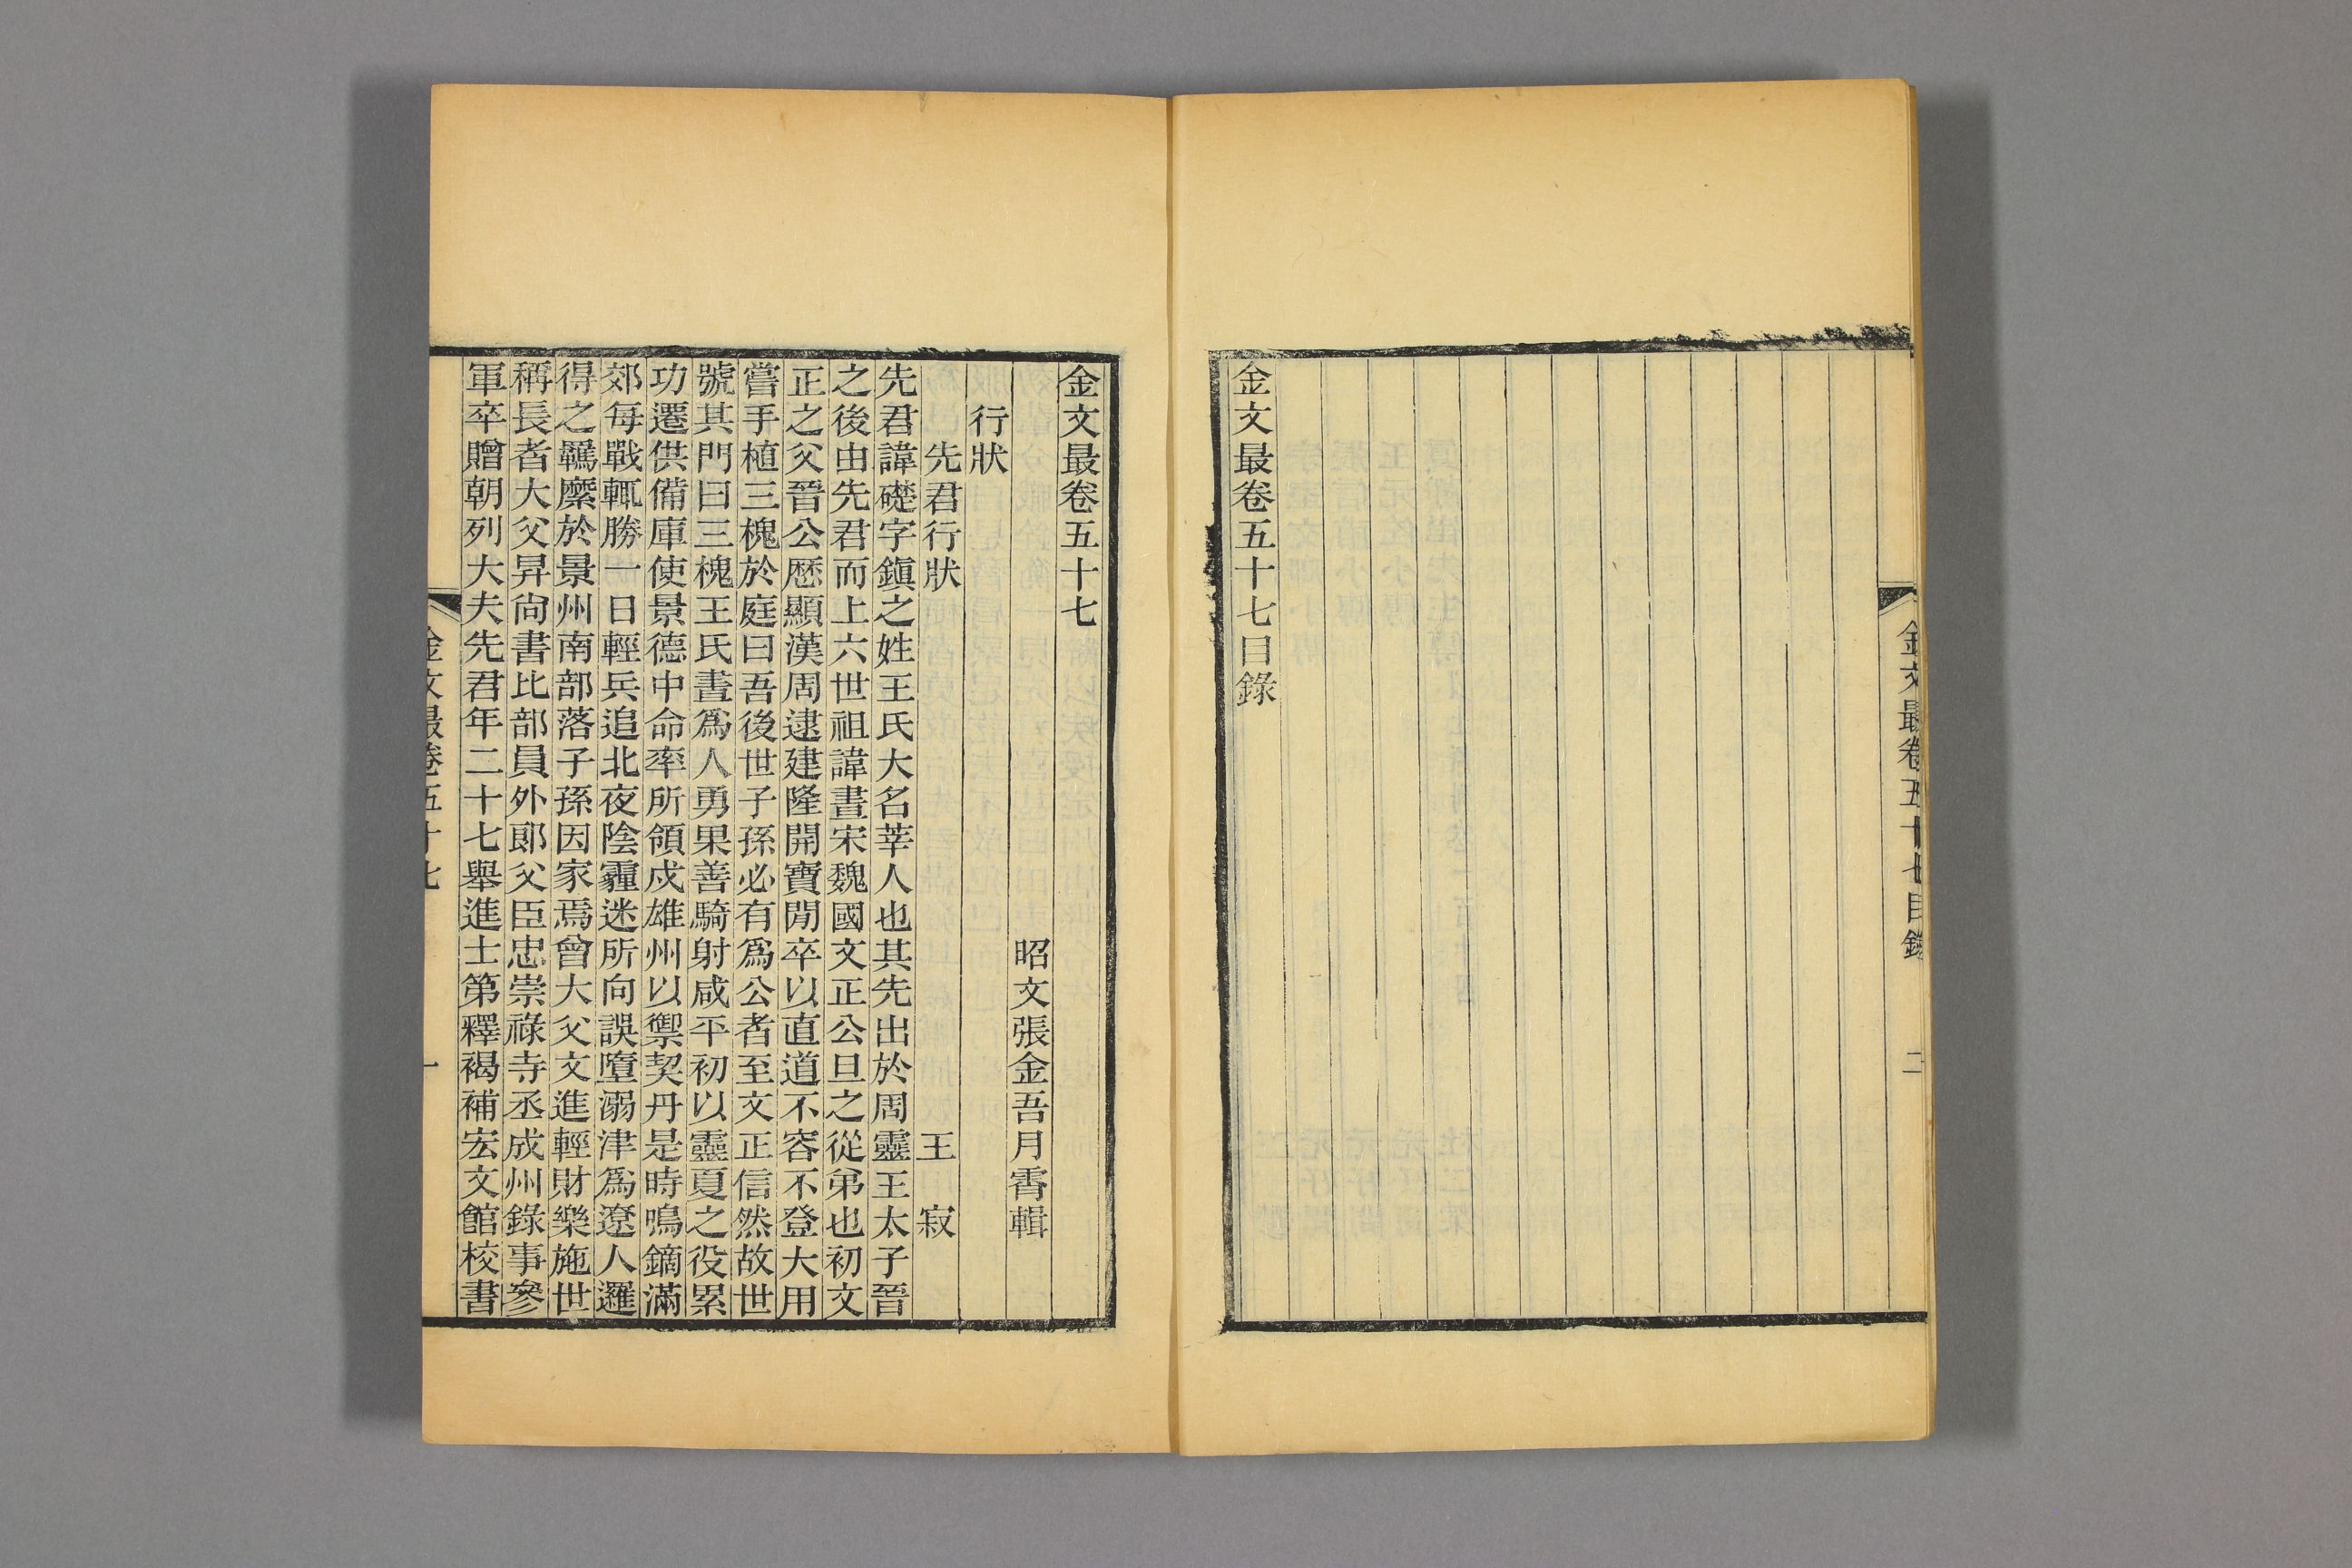 金文最卷五十七目錄
二
金文最卷五十七目錄
金文最卷五十七
昭文張金吾月霄輯
行狀
先君行狀 王寂
先君諱礎字鎭之姓王氏大名莘人也其先出於周靈王太子晉
之後由先君而上六世祖諱晝宋魏國文正公旦之從弟也初文
正之父晉公歷顯漢周逮建隆開寶閒卒以直道不容不登大用
嘗手植三槐於庭曰吾後世子孫必有爲公者至文正信然故世
號其門曰三槐王氏晝爲人勇果善騎射咸平初以靈夏之役累
功遷供備庫使景德中命率所領戍雄州以禦契丹是時鳴鏑滿
郊每戰輒勝一日輕兵追北夜陰霾迷所向誤墮溺津爲遼人邏
得之羈縻於景州南部落子孫因家焉曾大父文進輕財樂施世
稱長者大父昇尙書比部員外郞父臣忠崇祿寺丞成州錄事參
軍卒贈朝列大夫先君年二十七舉進士第釋褐補宏文館校書
金文最卷五十七
一